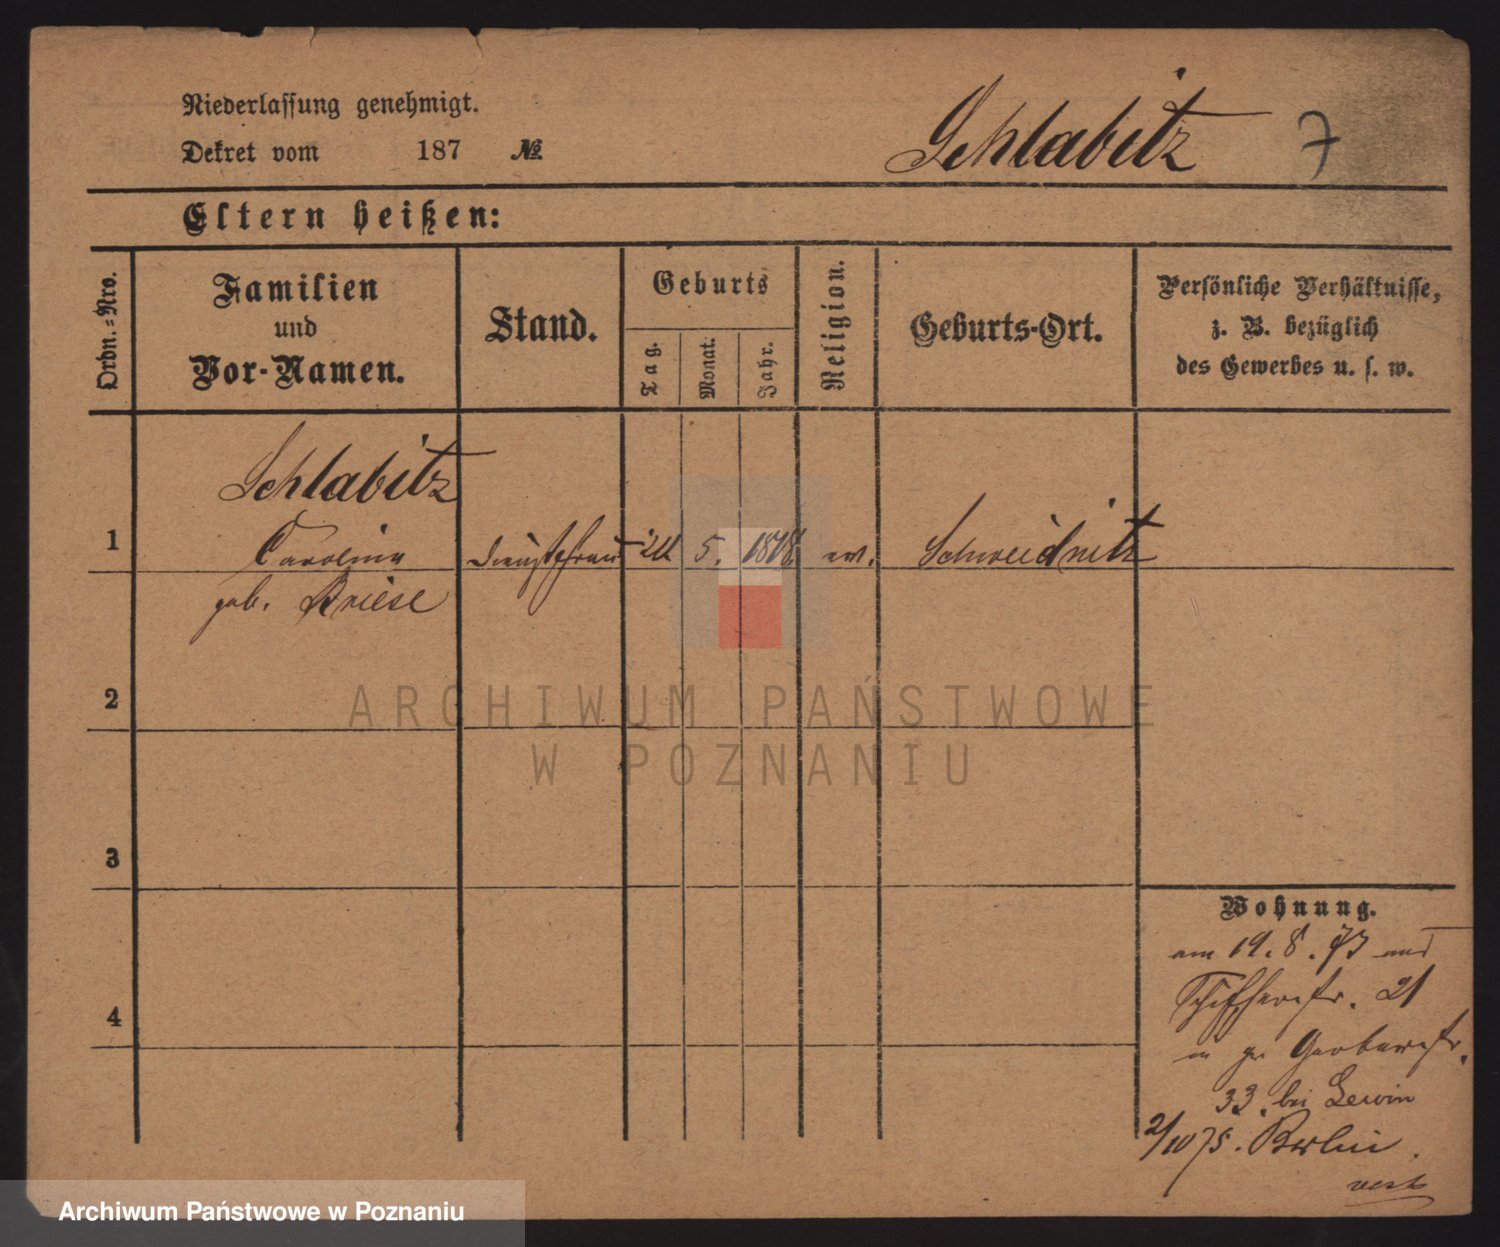 Niederlassung genehmigt.
Dekret vom 187 №
Schlabitz 7
Eltern heißen:
Ordn.=Nro.
Familien
und
Vor-Namen.
Stand.
Geburts
Tag.
Monat.
Jahr.
Religion.
Geburts-Ort.
Persönliche Verhältnisse,
z. B. bezüglich
des Gewerbes u. s. w.
Schlabitz
1 Carolina 5. 1818 ev. Schweidnitz
geb. Briese
2
ARCHIWUM PAŃSTWOWE
W POZNANIU
3
Wohnung.
am 19. 8. 73 aus
Schifferstr. 21
in gr Gerberstr.
33. bei Lewin
4
2/10 75. Berlin.
Archiwum Państwowe w Poznaniu